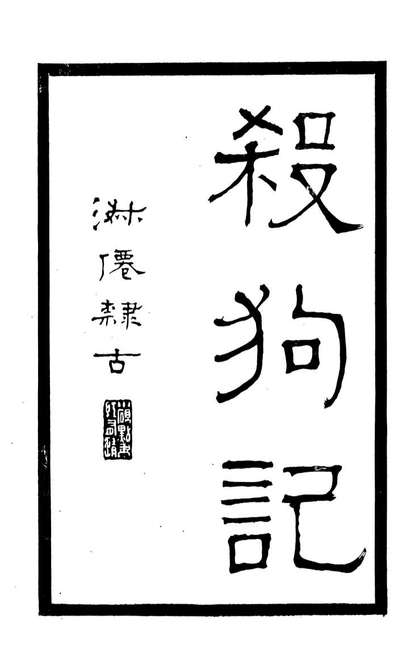 殺狗記
淋僊隸古